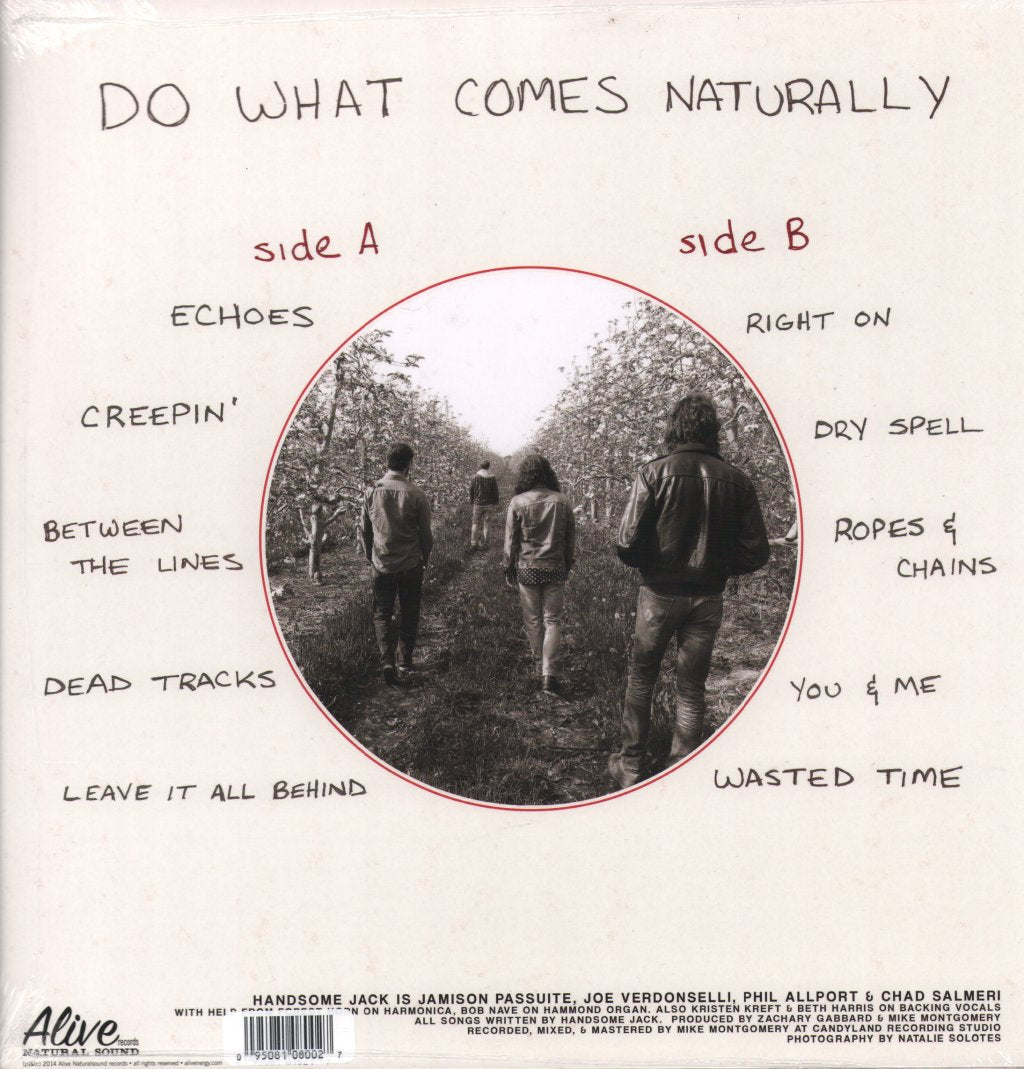 DO WHAT COMES NATURALLY
side A
ECHOES
CREEPIN'
BETWEEN
THE LINES
DEAD TRACKS
LEAVE IT ALL BEHIND
side B
RIGHT ON
DRY SPELL
ROPES &
CHAINS
YOU & ME
WASTED TIME
HANDSOME JACK IS JAMISON PASSUITE, JOE VERDONSELLI, PHIL ALLPORT & CHAD SALMERI
WITH ON HARMONICA, BOB NAVE ON HAMMOND ORGAN. ALSO KRISTEN KREFT & BETH HARRIS ON BACKING VOCALS
ALL SONGS WRITTEN BY HANDSOME JACK. PRODUCED BY ZACHARY GABBARD & MIKE MONTGOMERY
RECORDED, MIXED, & MASTERED BY MIKE MONTGOMERY AT CANDYLAND RECORDING STUDIO
PHOTOGRAPHY BY NATALIE SOLOTES
Alive records
NATURAL SOUND
(p)&(c) 2014 Alive Naturalsound records • all rights reserved • alivenergy.com
0 95081 08002 7